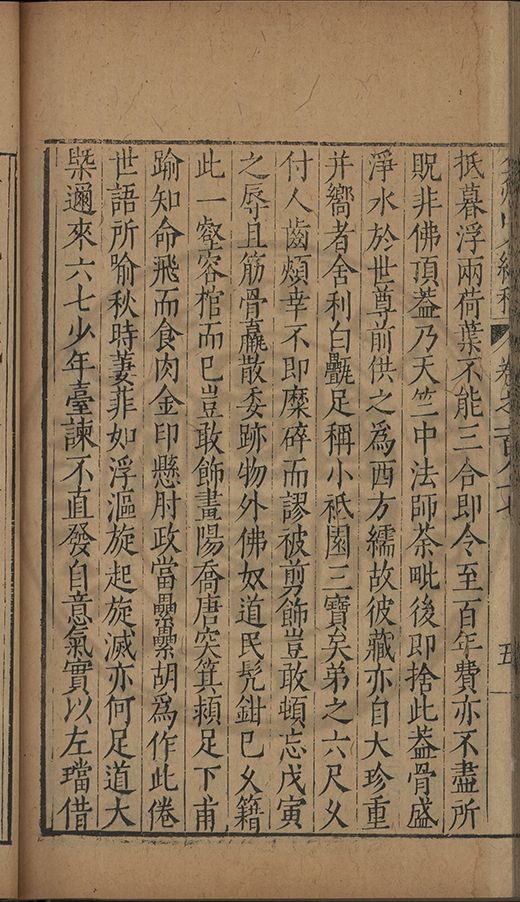 弇州山人續稿 卷之一百八十七 五
抵暮浮兩荷葉不能三合即令至百年費亦不盡所
貺非佛頂葢乃天竺中法師荼毗後即捨此葢骨盛
淨水於世尊前供之為西方繻故彼藏亦自大珍重
并嚮者舍利白㲲足稱小祇園三寶矣弟之六尺久
付人齒頰幸不即糜碎而謬被剪飾豈敢頓忘戊寅
之辱且筋骨羸散委跡物外佛奴道民髡鉗已久籍
此一壑容棺而已豈敢飾畫陽喬唐突箕潁足下甫
踰知命飛而食肉金印懸肘政當㬥㬥胡為作此倦
世語所喻秋時萋菲如浮漚旋起旋滅亦何足道大
槩邇來六七少年臺諫不直發自意氣實以左璫借